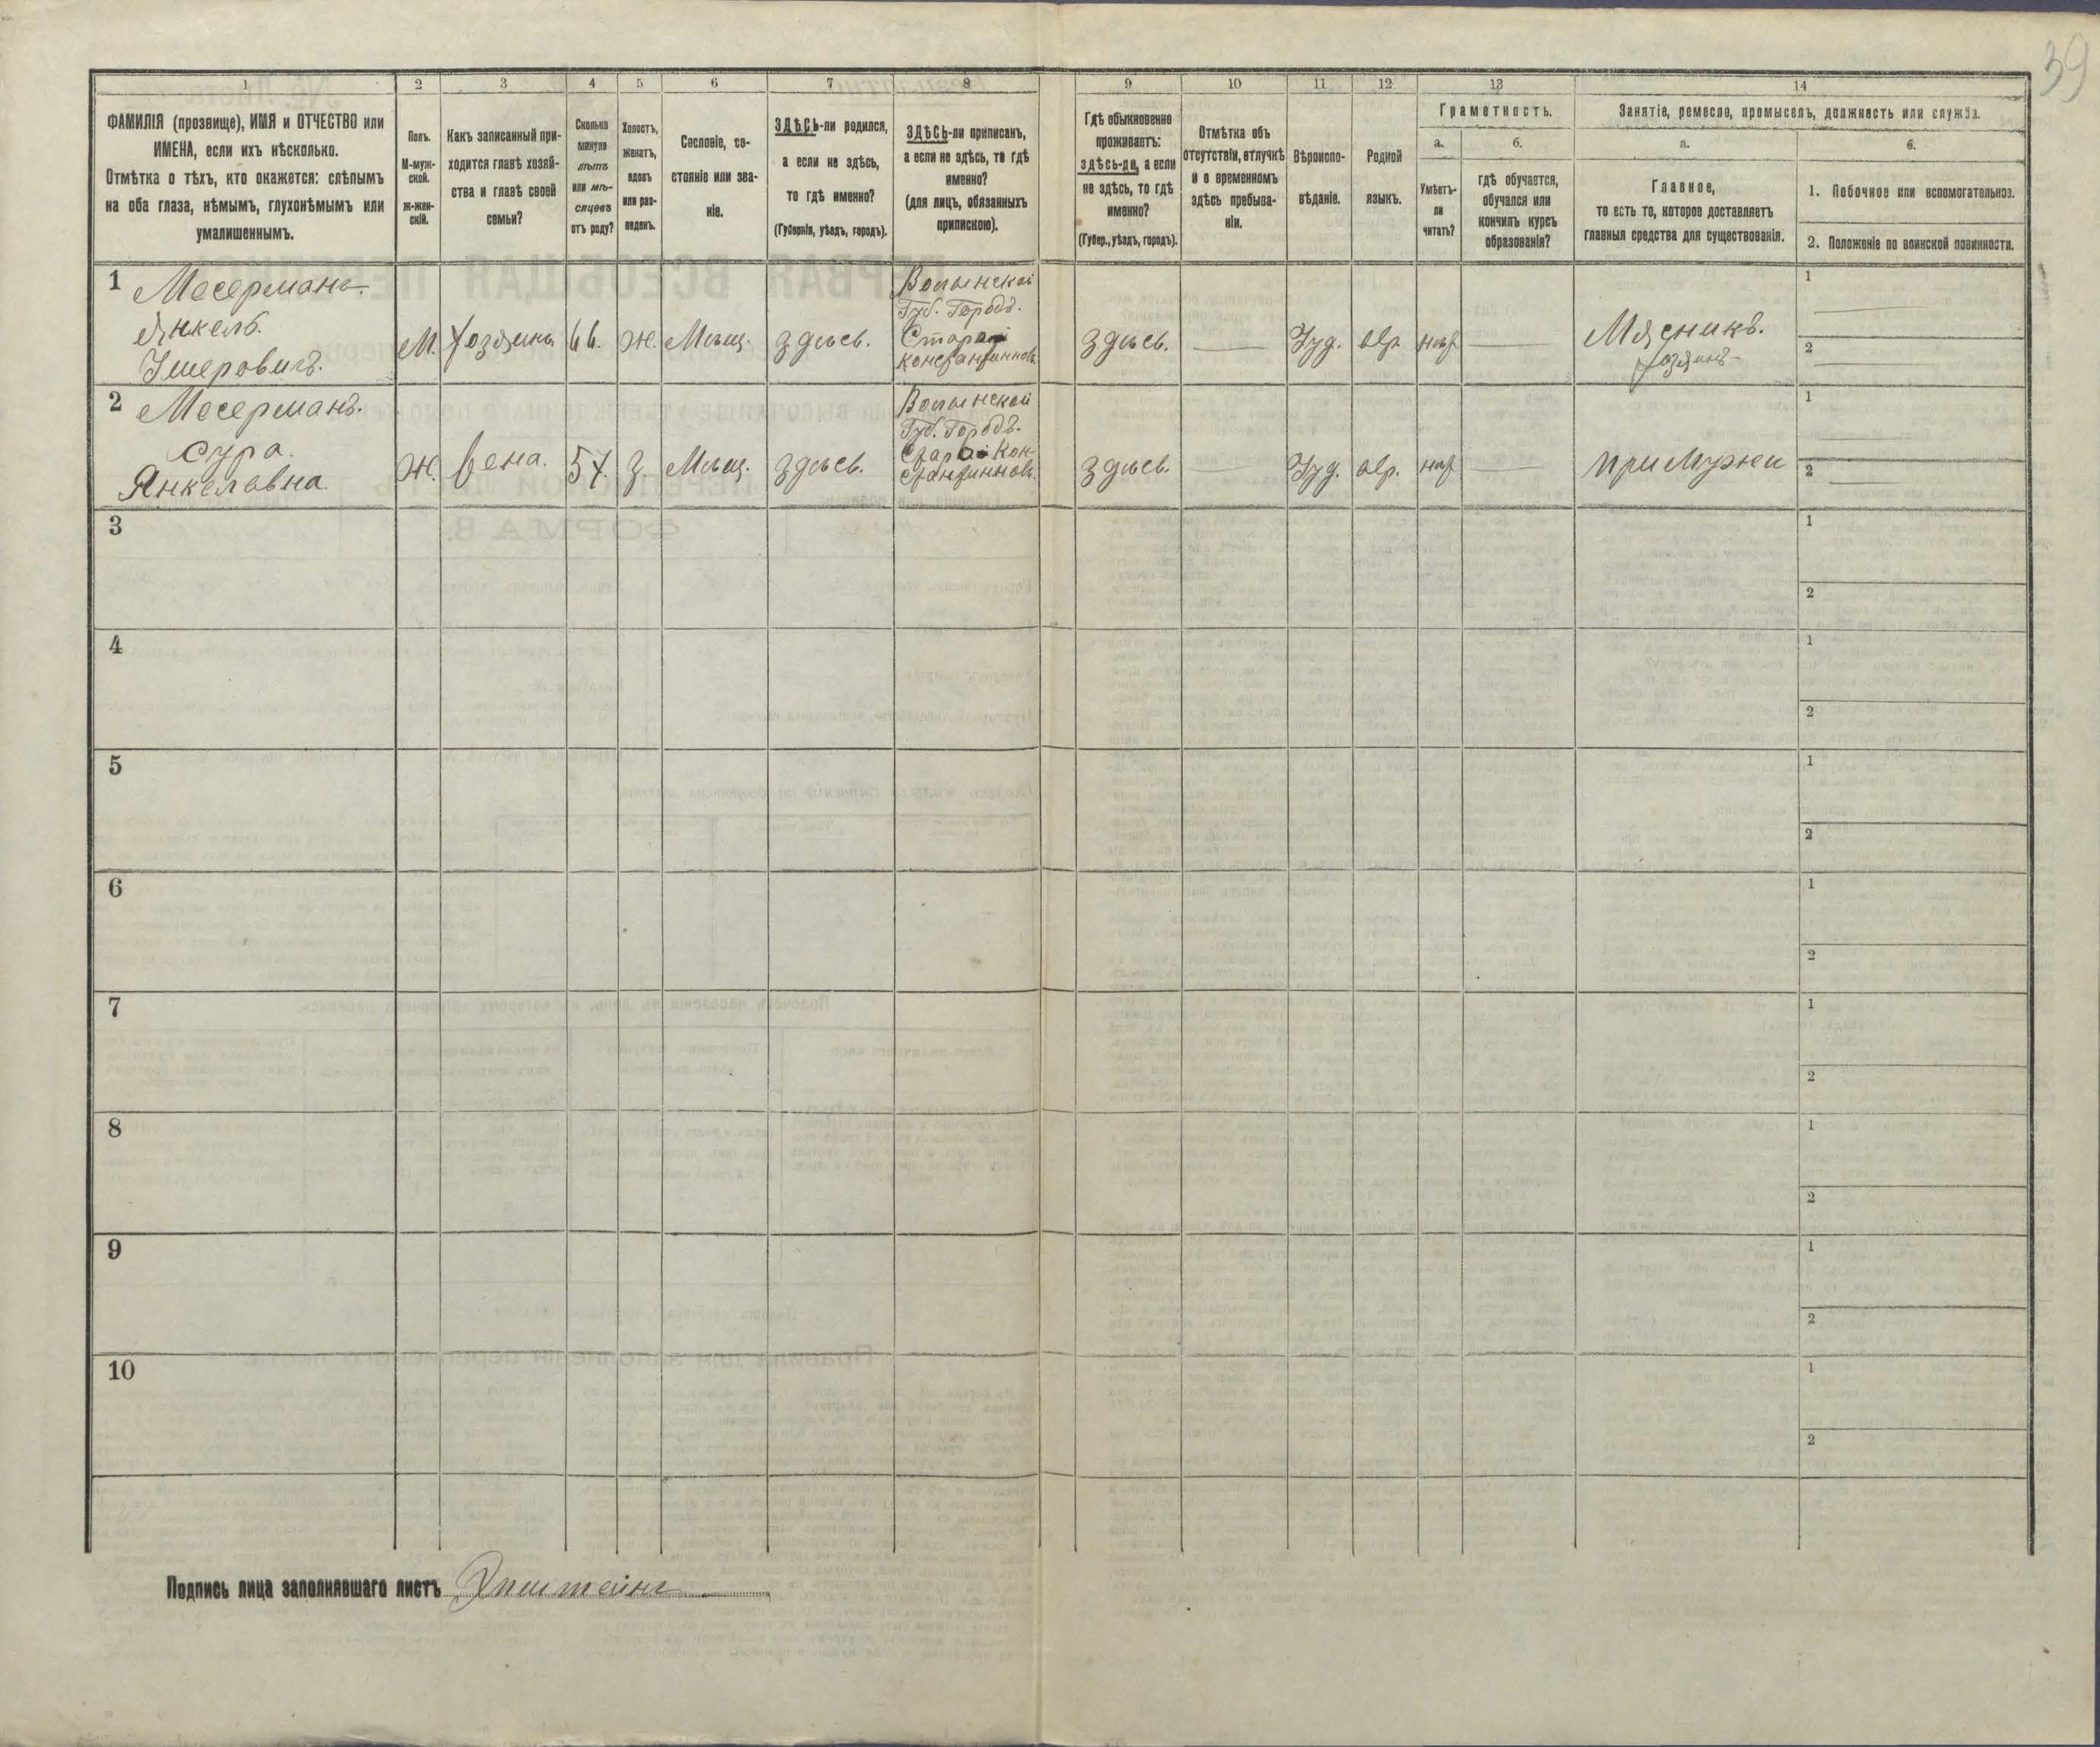 39
1
2
3
4
5
6
7
8
9
10
11
12
13
14
ФАМИЛІЯ (прозвище), ИМЯ и ОТЧЕСТВО или
ИМЕНА, если ихъ нѣсколько.
Отмѣтка о тѣхъ, кто окажется: слѣпымъ
на оба глаза, нѣмымъ, глухонѣмымъ или
умалишеннымъ.
Полъ.
М-муж-
ской.
ж-жен-
скій.
Какъ записанный при-
ходится главѣ хозяй-
ства и главѣ своей
семьи?
Сколько
минуло
лѣтъ
или мѣ-
сяцевъ
отъ роду?
Холостъ,
женатъ,
вдовъ
или раз-
веденъ.
Сословіе, со-
стояніе или зва-
ніе.
ЗДѢСЬ-ли родился,
а если не здѣсь,
то гдѣ именно?
(Губернія, уѣздъ, городъ).
ЗДѢСЬ-ли приписанъ,
а если не здѣсь, то гдѣ
именно?
(для лицъ, обязанныхъ
припискою).
Гдѣ обыкновенно
проживаетъ:
здѣсь-ли, а если
не здѣсь, то гдѣ
именно?
(Губер., уѣздъ, городъ).
Отмѣтка объ
отсутствіи, отлучкѣ
и о временномъ
здѣсь пребыва-
ніи.
Вѣроиспо-
вѣданіе.
Родной
языкъ.
Грамотность.
а.
Умѣетъ-
ли
читать?
б.
гдѣ обучается,
обучался или
кончилъ курсъ
образованія?
Занятіе, ремесло, промыселъ, должность или служба.
а.
Главное,
то есть то, которое доставляетъ
главныя средства для существованія.
б.
1. Побочное или вспомогательное.
2. Положеніе по воинской повинности.
1 Месерманъ.
Янкель.
Ушеровичъ.
М. Хозяинъ 66. ж. Мѣщ. здѣсь.
Волынской
Губ. Городъ.
Старой
константиновъ
здѣсь. — Іуд. евр. нѣт —
Мясникъ.
хозяинъ
1
2
2 Месерманъ.
Сура.
Янкелевна
Ж. жена. 57. З. Мѣщ. здѣсь.
Волынской
Губ. Городъ.
Старой Кон-
стантиновъ.
здѣсь. — Іуд. евр. нѣт —
при мужи
1
2
3
1
2
4
1
2
5
1
2
6
1
2
7
1
2
8
1
2
9
1
2
10
1
2
Подпись лица заполнявшаго листъ Эпштейнъ